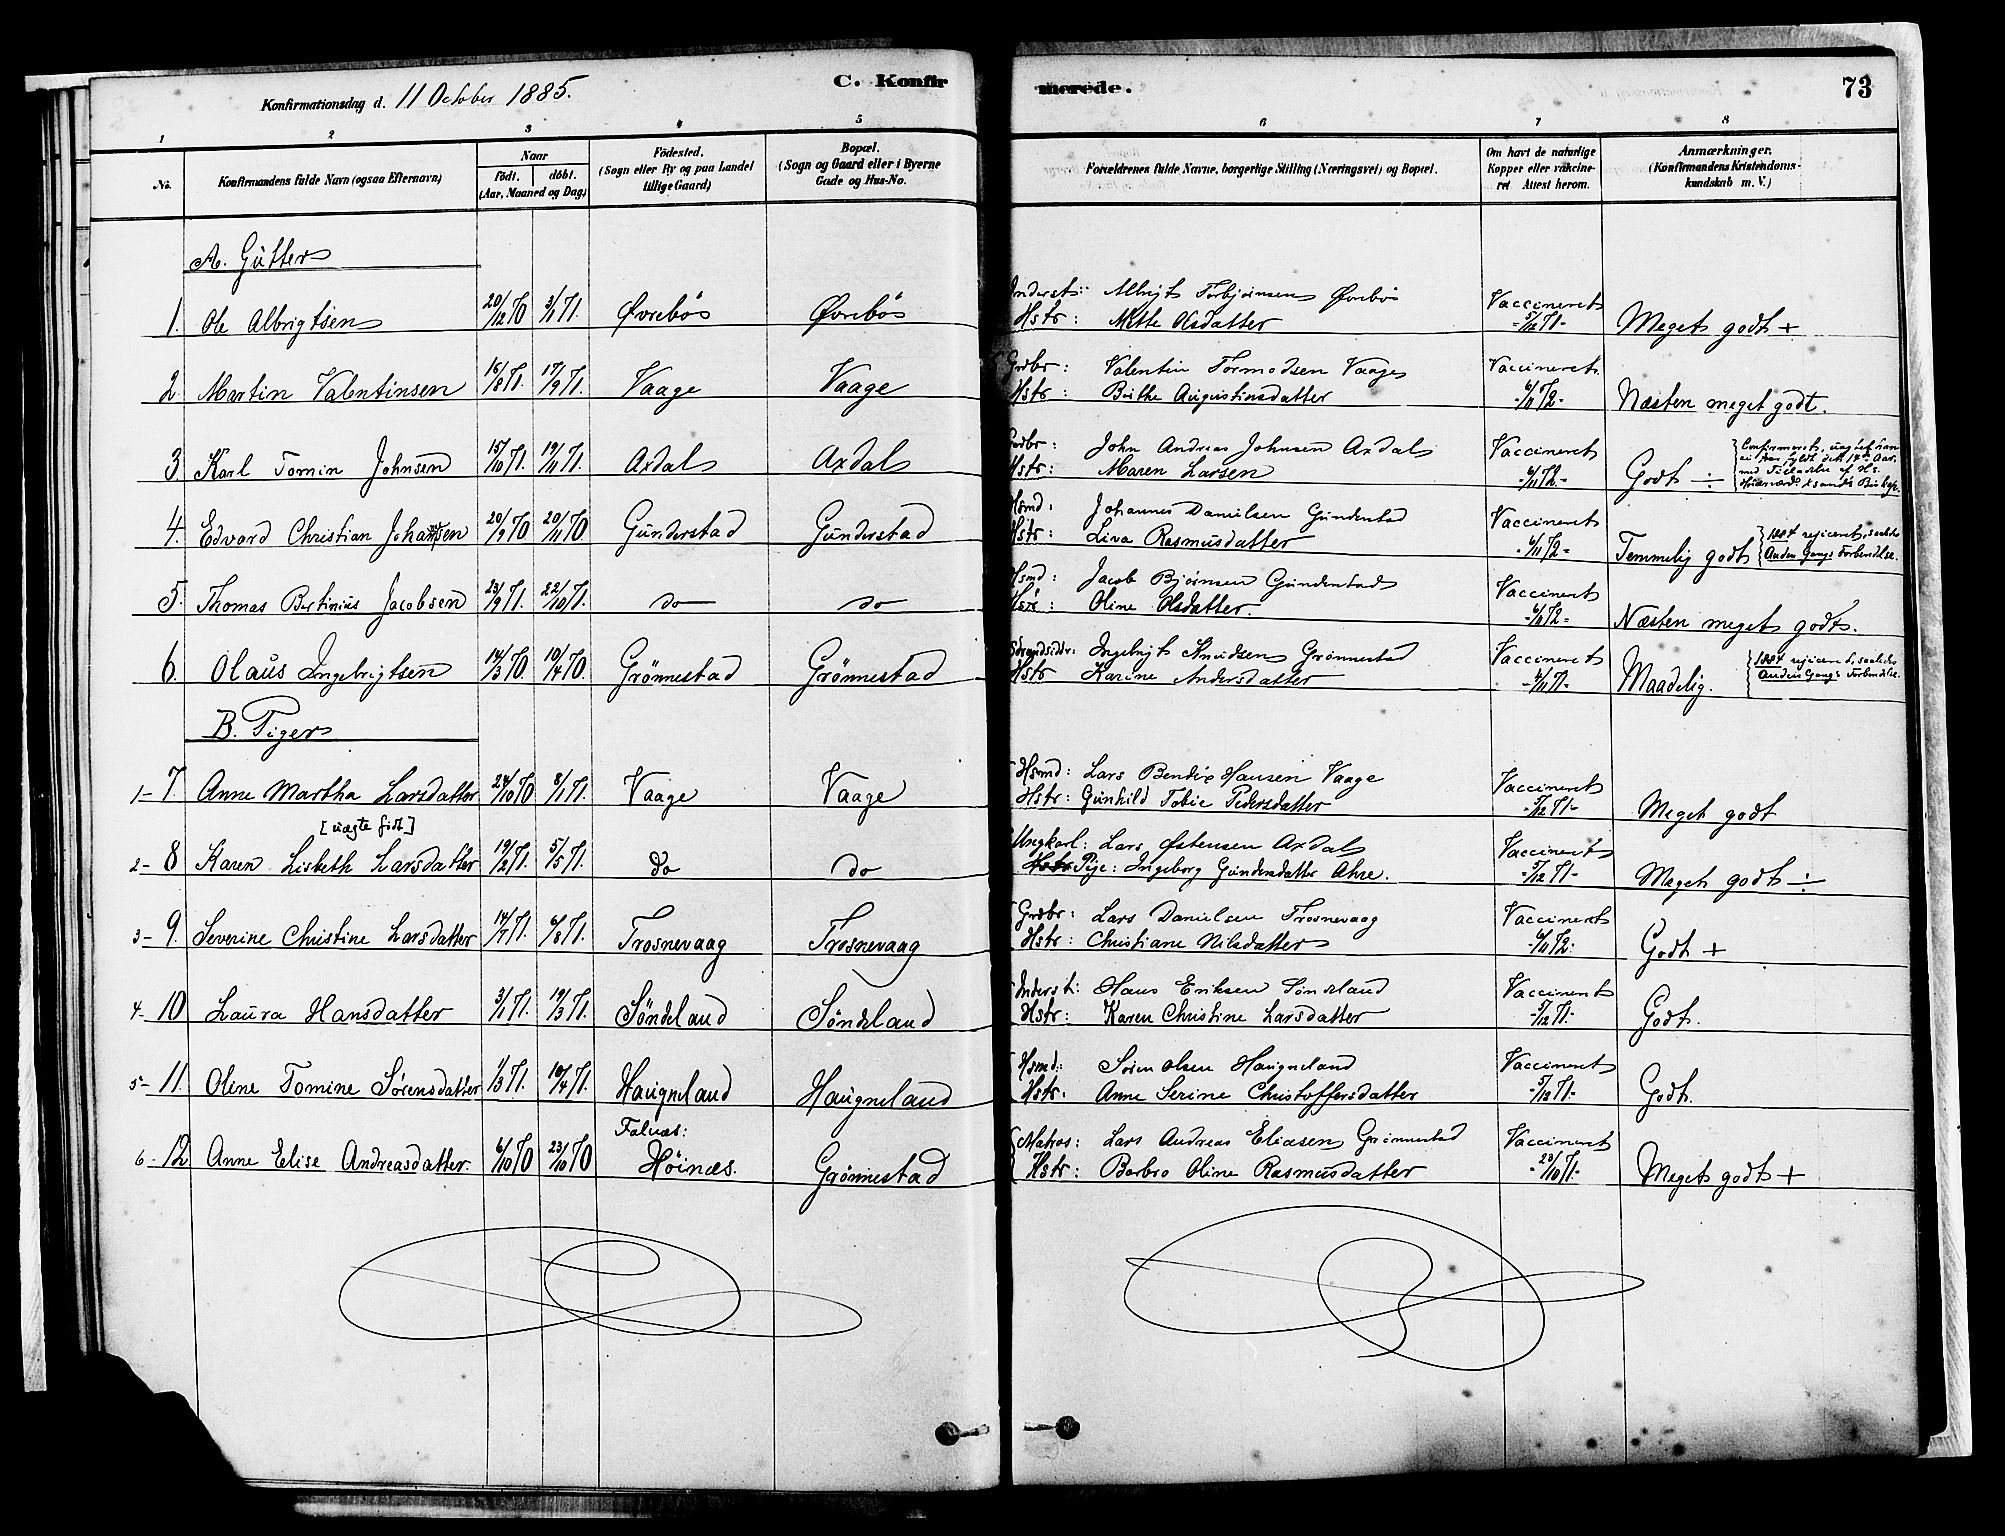 Konfirmationsdag d. 11 October 1885.
C. Konfirmerede.
73
1 2 3 4 5 6 7 8
No.
Konfirmandens fulde Navn (ogsaa Efternavn)
Naar
født. døbt.
(Aar, Maaned og Dag)
Fødested.
(Sogn eller By og paa Landet
tillige Gaard)
Bopæl.
(Sogn og Gaard eller i Byerne
Gade og Hus-No.
Forældrenes fulde Navne, borgerlige Stilling (Næringsvei) og Bopæl.
Om havt de naturlige
Kopper eller vakcine-
ret Attest herom.
Anmærkninger.
(Konfirmandens Kristendoms-
kundskab m. V.)
A. Gütter
1. Ole Albrigtsen 20/12 70 3/1 71. Øvrebö Øvrebö
Inderst: Albrigt Torbjörnsen Øvrebö
Hstr: Mette Olsdatter
Vaccineret
5/12 71
Meget godt +
2. Martin Valentinsen 16/8 71. 17/9 71. Vaage Vaage
Grdbr: Valentin Tormodsen Vaage
Hstr: Birthe Augustinsdatter
Vaccineret
6/11 72
Næsten meget godt.
3. Karl Tomin Johnsen 15/10 71. 19/11 71. Axdal Axdal
Grdbr: John Andreas Johnsen Axdal
Hstr: Maren Larsen
Vaccineret
6/11 72
Godt ÷
4. Edvard Christian Johansen 20/9 70 20/11 70 Günderstad Günderstad
Hsmd: Johannes Danielsen Gunderstad
Hstr: Lina Rasmusdatter
Vaccineret
6/11 72
Temmelig godt
1884 rejiceret, saaledes
Anden Gangs Forberedelse.
5. Thomas Bertinius Jacobsen 23/9 71. 22/10 71. do do
Hsmd: Jacob Bjørnsen Gunderstad
Hstr: Oline Olsdatter.
Vaccineret
6/11 72
Næsten meget godt.
6. Olaus Ingebrigtsen 14/3 70. 10/4 70. Grönnestad Grönnestad
Strandsidr: Ingebrigt Knudsen Grønnestad
Hstr Karine Andersdatter
Vaccineret
4/11 71
Maadelig.
1884 rejiceret, saaledes
Anden Gangs Forberedelse.
B. Piger
1- 7 Anne Martha Larsdatter 24/10 70 8/1 71. Vaage Vaage
Hsmd: Lars Bendix Hansen Vaage
Hstr: Gunhild Tobie Pedersdatter
Vaccineret
5/12 71
Meget godt
[uægte født]
2- 8 Karen Lisbeth Larsdatter 19/2 71. 5/5 71. do do
Ungkarl: Lars Østensen Axdal
Pige: Ingeborg Gundersdatter Ahre.
Vaccineret
5/12 71
Meget godt ÷
3- 9. Severine Christine Larsdatter 14/7 71. 6/8 71. Trosnevaag Trosnevaag
Grdbr: Lars Danielsen Trosnevaag
Hstr: Christiane Nilsdatter
Vaccineret
6/11 72
Godt +
4- 10 Laura Hansdatter 3/1 71. 19/3 71. Söndeland Söndeland
Inderst: Hans Eriksen Söndeland
Hstr: Karen Christine Larsdatter
Vaccineret
5/12 71
Godt.
5- 11. Oline Tomine Sörensdatter 1/3 71. 10/4 71. Haugneland Haugneland
Hsmd: Sören Olsen Haugneland
Hstr: Anne Serine Christoffersdatter
Vaccineret
5/12 71
Godt.
6- 12 Anne Elise Andreasdatter. 6/10 70 23/10 70 Falnæs:
Höinæs. Grönnestad
Matros: Lars Andreas Eliasen Grønnestad
Hstr: Barbro Oline Rasmusdatter
Vaccineret
23/10 71
Meget godt +